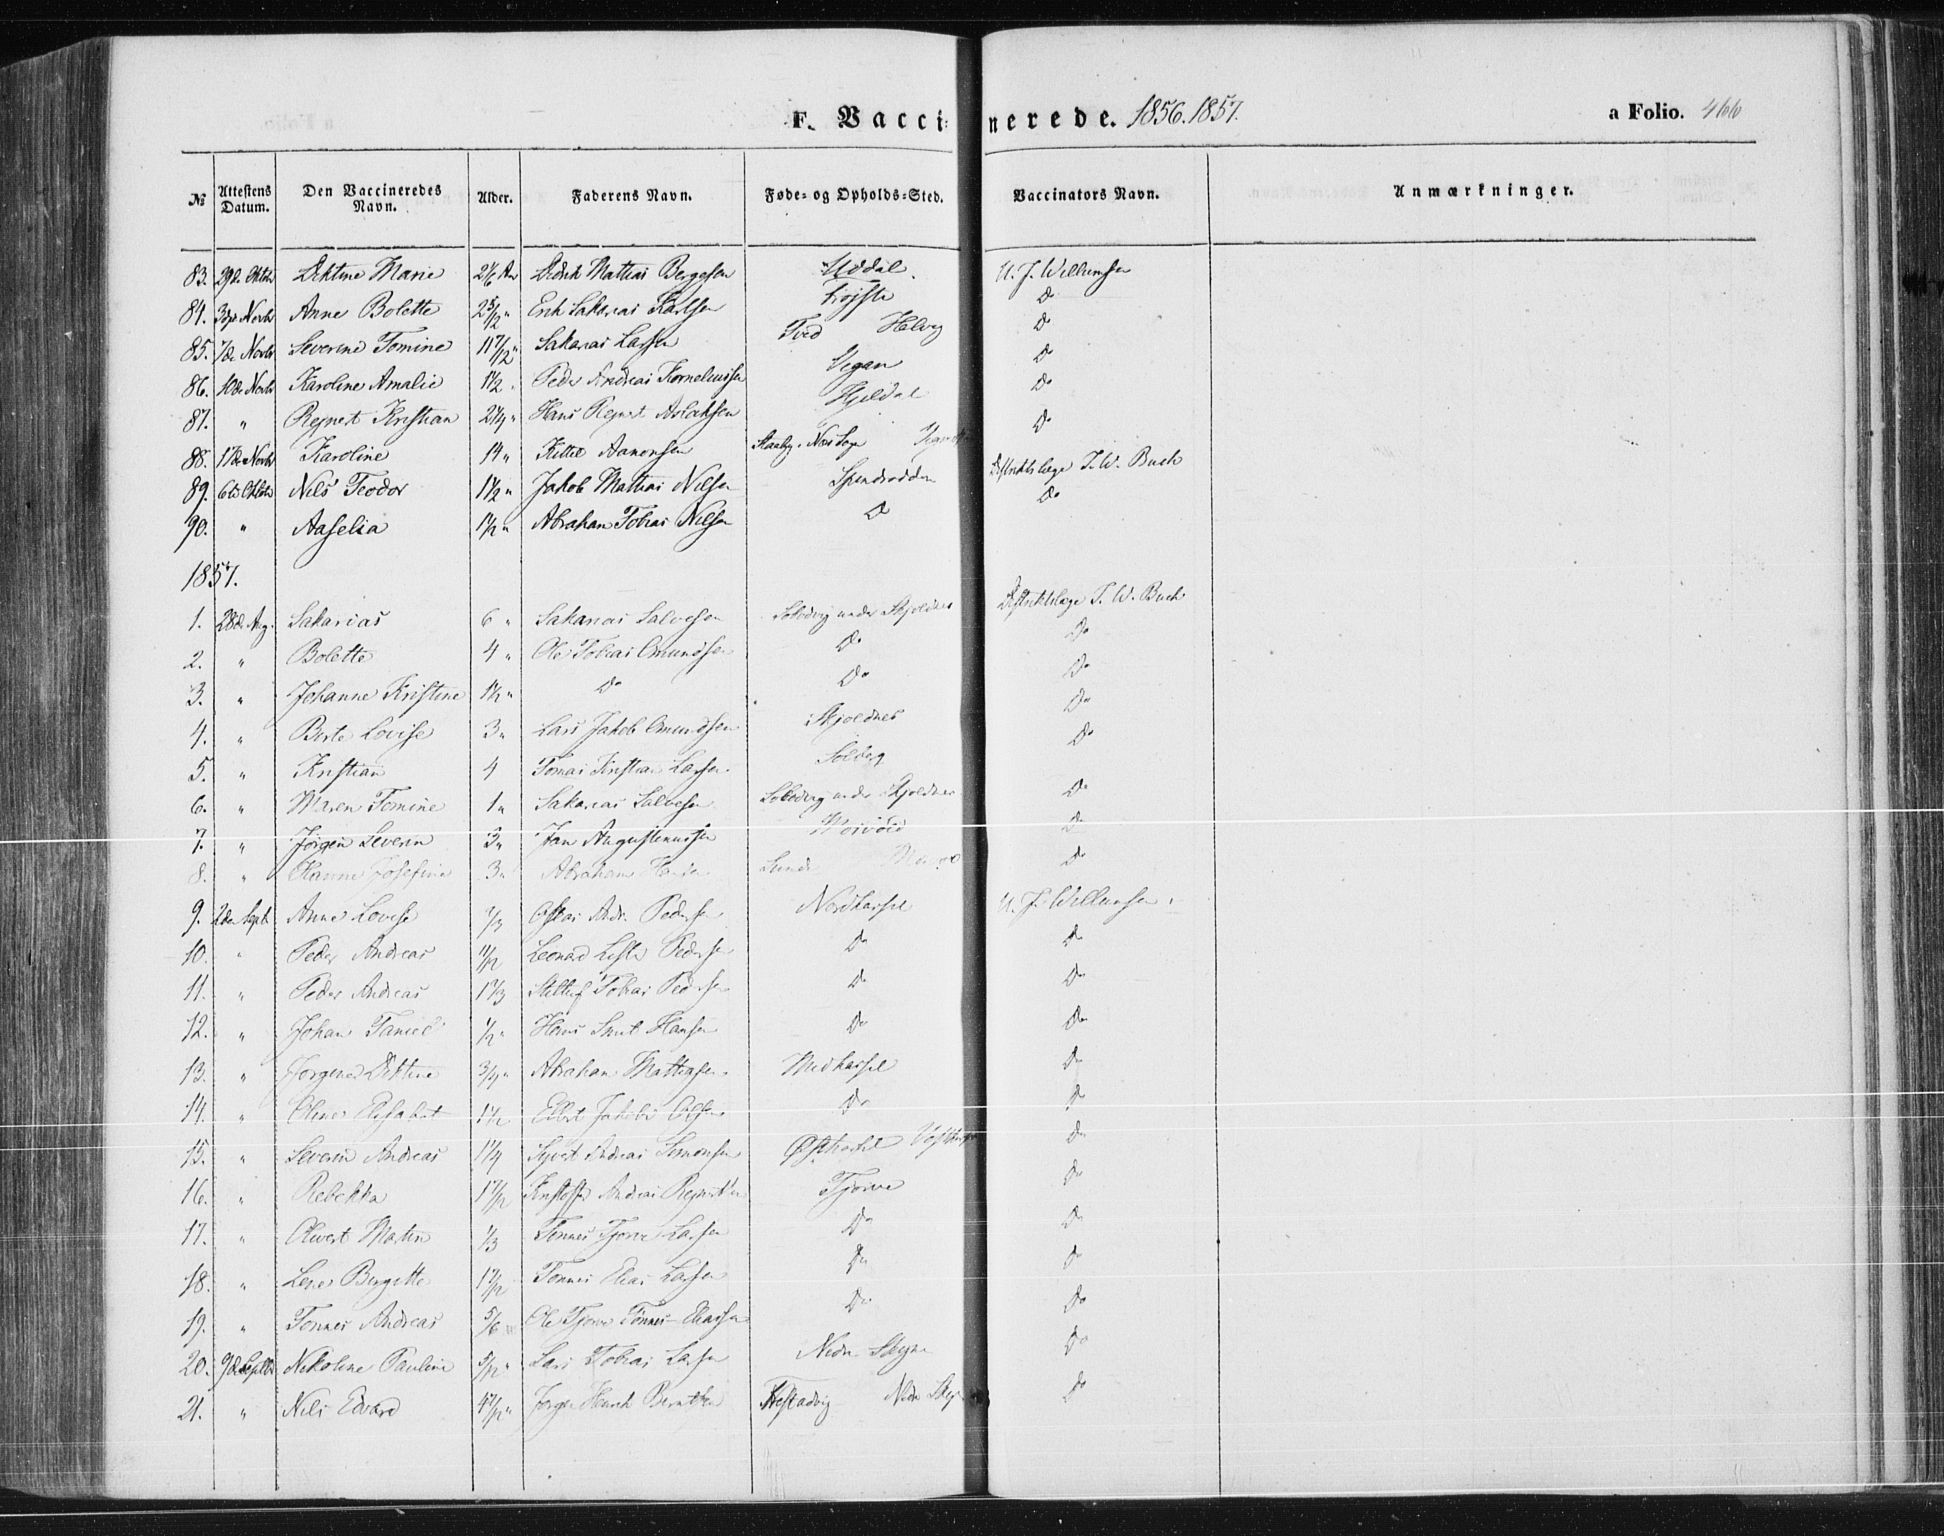 F. Vaccinerede. 1856.1857. a Folio. 466
№ Attestens Datum. Den Vaccineredes Navn. Alder. Faderens Navn. Føde- og Opholds-Sted. Vaccinators Navn. Anmærkninger.
83. 29de Oktbr Diktine Marie 2 1/6 Aar Didrik Mathias Bergesen Uddal. U. J. Willumsen
84. 3die Novbr Anne Bolette 2 5/12 " Erik Sakarias Karlsen Do
85. 7de Novbr Severine Tomine 11 7/12 " Sakarias Larsen Tved Helvig Do
86. 10de Novbr Karoline Amalie 1 1/2 " Peder Andreas Korneliussen Vegan Do
87. " Rejnert Kristian 2 1/4 " Hans Rejnert Aslaksen Hjeldal Do
88. 17de Novbr Karoline 14 " Kittil Aanensen Do
89. 6te Oktbr Nils Teodor 1 1/2 " Jakob Mathias Nilsen Spindsodden Distriktslæge T. W. Buch
90. " Aaselia 1/2 " Abraham Tobias Nilsen Do Do
1857.
1. 28de Aug. Sakarias 6 " Sakarias Salvesen under Skjoldnes Distriktslæge T. W. Buch
2. " Bolette 4 " Ole Tobias Omundsen Do Do
3. " Johanne Kristine 1 1/2 " Do Do Do
4. " Berte Lovise 3 " Lars Jakob Omundsen Skjoldnes Do
5. " Kristian 4 Tomas Kristian Larsen Solberg Do
6. " Maren Tomine 1 " Sakarias Salvesen under Skjoldnes Do
7. " Jørgen Severin 3 " Jan Augustinussen Do
8. " Hanne Josefine 3 " Abraham Hansen Lunde Do
9. 2den Sept. Anne Lovise 1/3 Andr. Pedersen Nordhassel U. J. Willumsen.
10. " Peder Andreas 11/12 Leonard Lister Pedersen Do Do
11. " Peder Andreas 1 2/3 Tobias Pedersen Do Do
12. " Johan Daniel 1/2 " Hans Smit Hansen Do Do
13. " Jørgine Diktine 3/4 " Abraham Mathiasen Midhassel Do
14. " Oline Elisabet 1 1/2 Elbert Jakob Olsen Do Do
15. " Severin Andreas 1 1/4 Syvert Andreas Simonsen Østhassel Do
16. " Rebekka 1 7/12 Kristoffer Andreas Rejnertsen Tjørve Do
17. " Elivert Martin 1/3 Tønnes Tjørve Larsen Do Do
18. " Lene Birgitte 1 7/12 Tønnes Elias Larsen Do Do
19. " Tønnes Andreas 5/6 " Ole Tjørve Tønnes Eliassen Do Do
20. 9de Septbr Nikoline Pauline 5/12 " Lars Tobias Larsen Nedre Skeje Do
21. " Nils Edvard 4 7/12 " Jørgen Henrik Berntsen Nedre Do